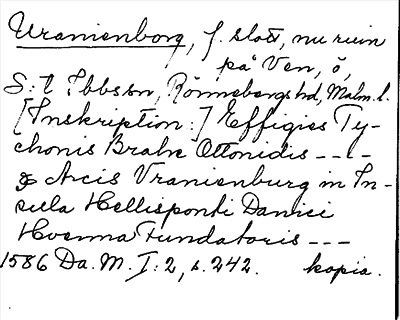 Uranienborg, f. slott, nu ruin
på Ven, ö,
S:t Ibbs sn, Rönnebergs hd, Malm. l.
[Inskription:] Effigies Ty-
chonis Brahe Ottonidis - - -
& Arcis Vranienburg in In-
sula Hellisponti Danici
Hvenna Fundatoris - - -
1586 Da. M. I:2, s. 242. kopia.